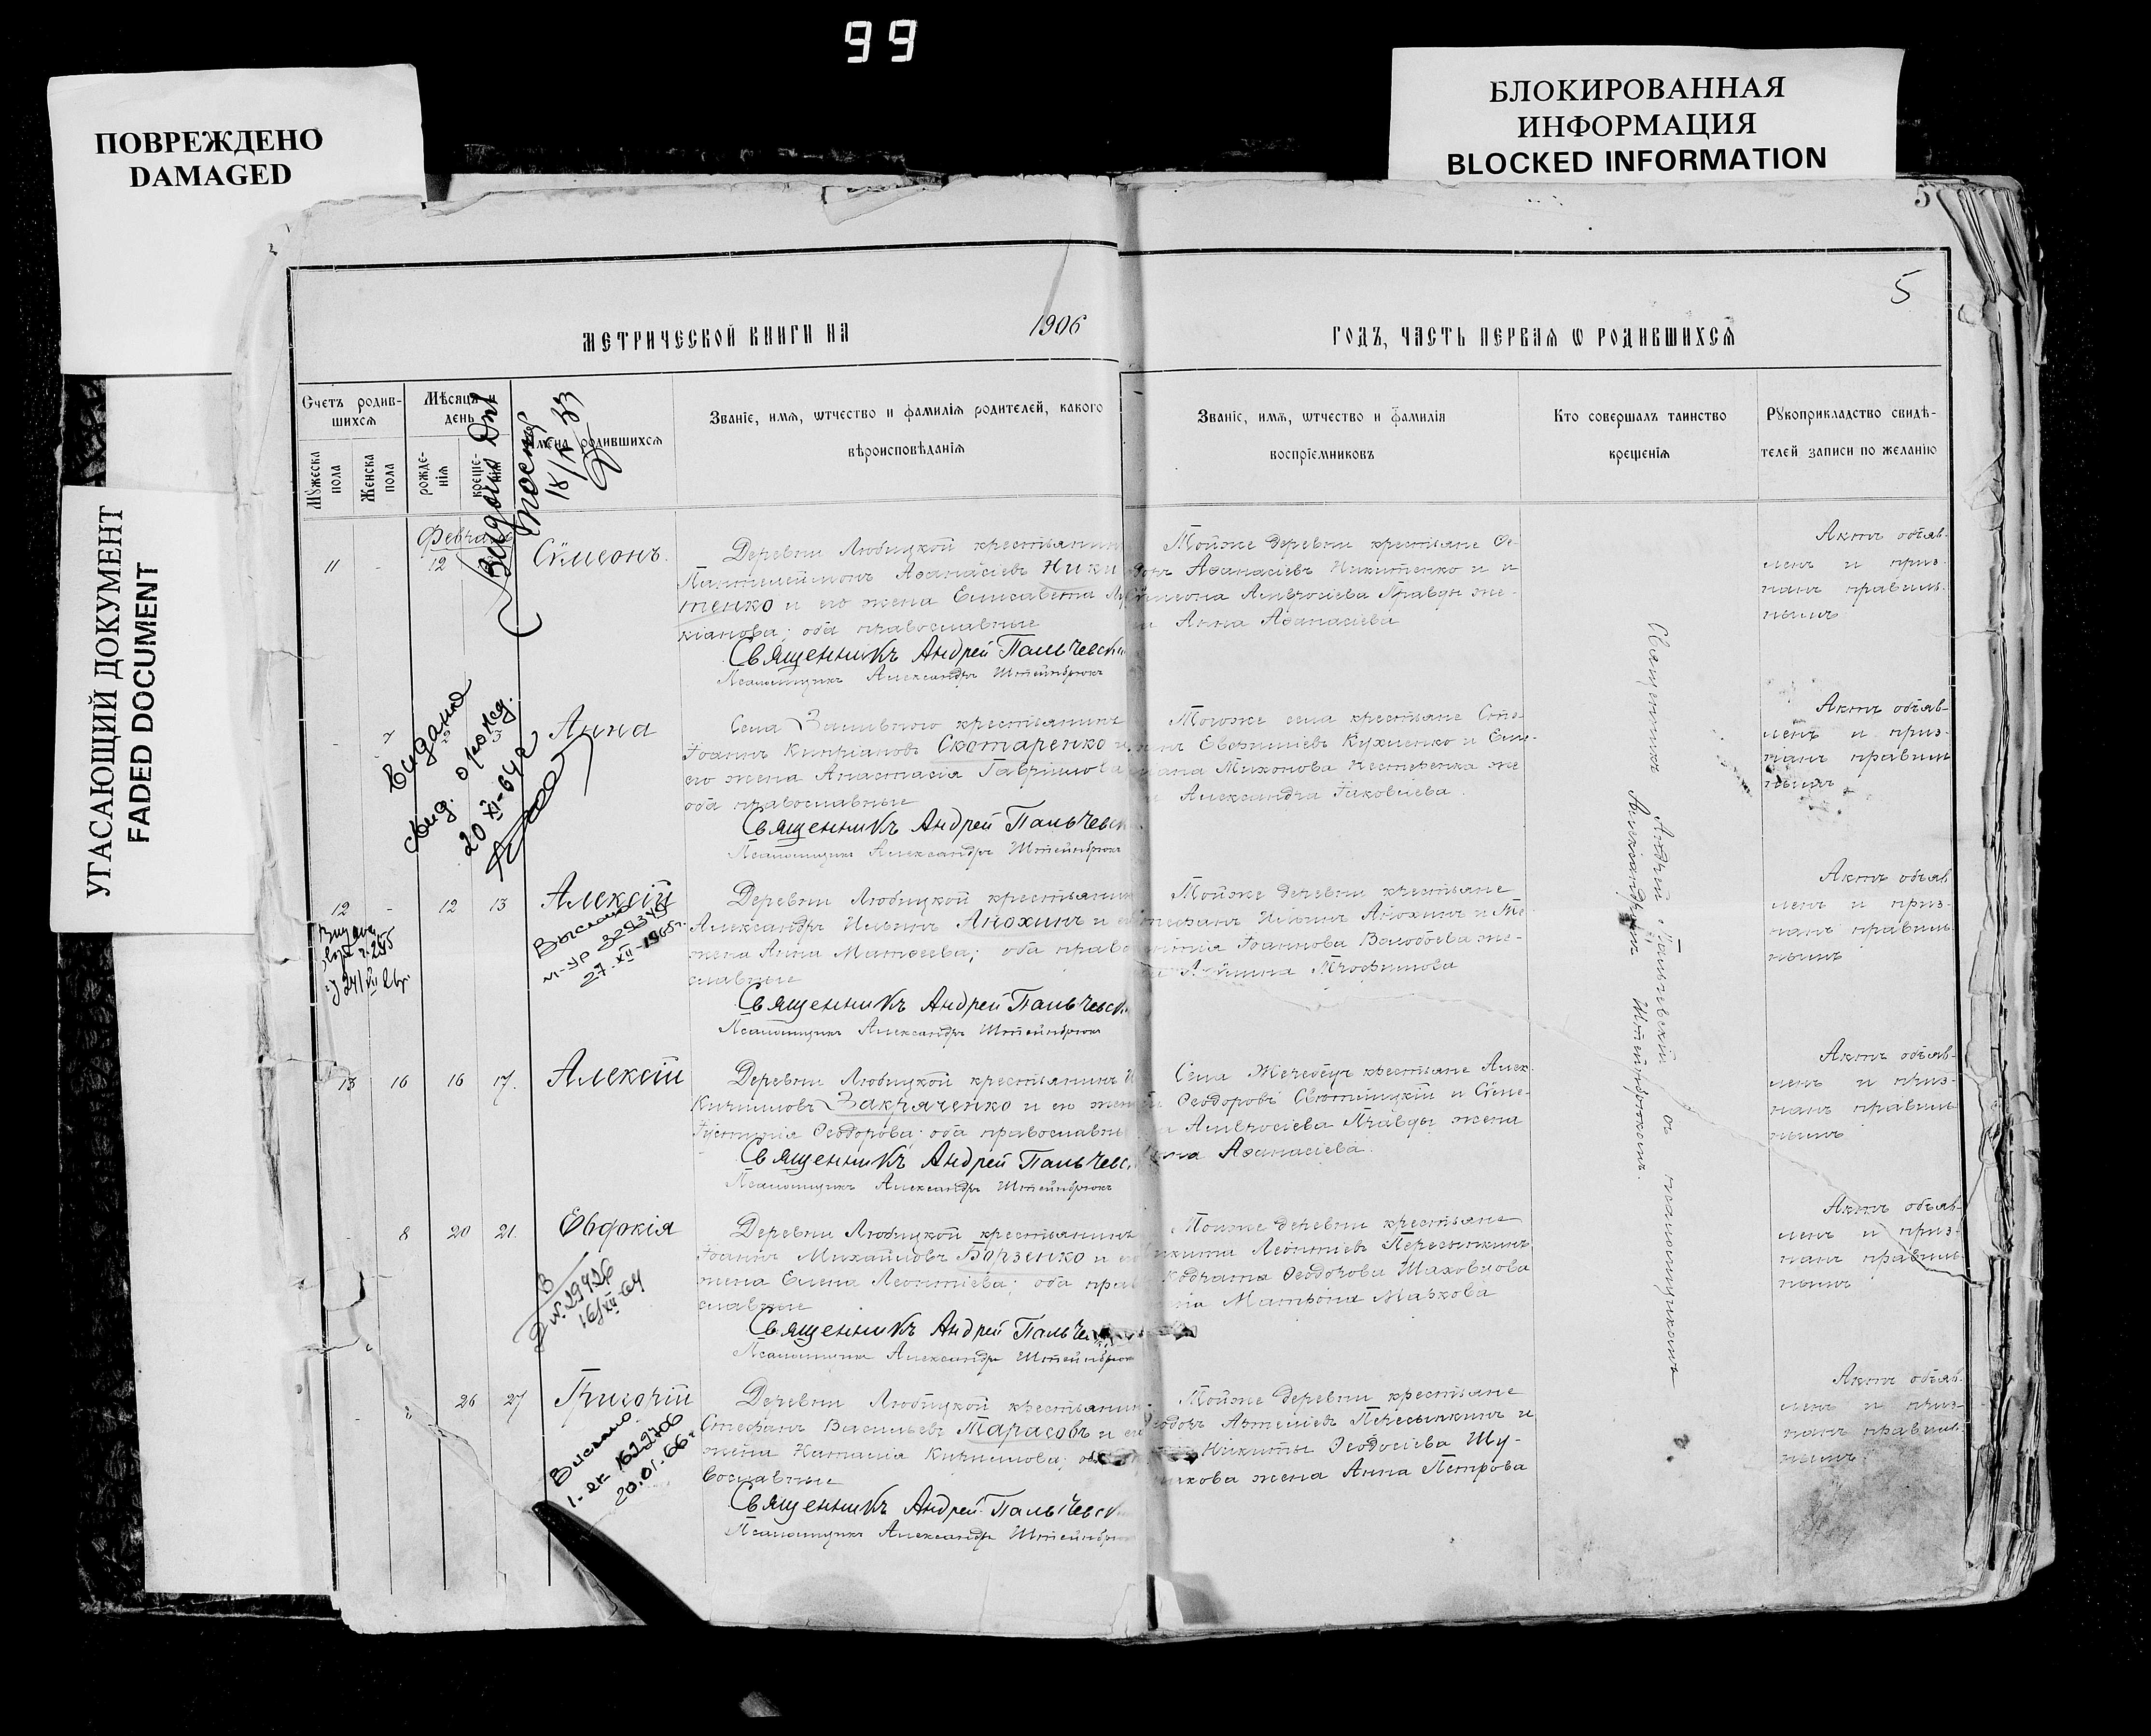 99
ПОВРЕЖДЕНО
DAMAGED
БЛОКИРОВАННАЯ
ИНФОРМАЦИЯ
BLOCKED INFORMATION
УГАСАЮЩИЙ ДОКУМЕНТ
FADED DOCUMENT
5
5
МЕТРИЧЕСКОЙ КНИГИ НА 1906 ГОДЪ, ЧАСТЬ ПЕРВАЯ Ѡ РОДИВШИХСЯ
Счетъ родив-
шихся
Мужеска пола
Женска пола
Мѣсяцъ и
день
рожде-
нія
креще-
нія
Имена родившихся
Званіе, имя, ѡтчество и фамилія родителей, какого
вѣроисповѣданія
Званіе, имя, ѡтчество и фамилія
воспріемниковъ
Кто совершалъ таинство
крещенія
Рукоприкладство свидѣ-
телей записи по желанію
Февраль
11 - 12
Сѵмеонъ.
Деревни Любицкой крестьянинъ
Пантелеймонъ Аѳанасіевъ Ники
тенко и его жена Елисавета
кіанова; оба православные
Священникъ Андрей Пальчевск
Псаломщикъ Александръ Штейнбрюкъ
Тойже деревни крестьяне Ѳе-
Аѳанасіевъ Никитенко и
Амвросіева Правды же-
на Анна Аѳанасіева
Актъ объяв-
ленъ и приз-
нанъ правиль-
нымъ
Видана
свид. о рожд.
20 XI-64 г
- 7
Анна
Села Заливного крестьянинъ
Іоаннъ Кипріановъ Скотаренко и
его жена Анастасія Гавріилова
оба православные
Священникъ Андрей Пальчевск
Псаломщикъ Александръ Штейнбрюкъ
Тогоже села крестьяне Сте-
Евѳиміевъ Кухленко и
Тихонова Нестеренка же
на Александра Іаковлева.
Актъ объяв-
ленъ и приз-
нанъ правиль
нымъ
12 - 12 13
Алексій
Выслано
27-XII-1965г.
Деревни Любицкой крестьянинъ
Александръ Ильинъ Анохинъ и его
жена Анна Матѳеева; оба право
славные
Священникъ Андрей Пальчевск
Псаломщикъ Александръ Штейнбрюкъ
Тойже деревни крестьяне
Стефанъ Ильинъ Анохинъ и Те-
Іоаннова Волобоева же-
на Трофимова
Актъ объяв
ленъ и приз-
нанъ правиль-
нымъ
13 16 16 17.
Алексій
Деревни Любицкой крестьянинъ
Кирилловъ Закряченко и его жена
Іустинія Ѳеодорова; оба православные
Священникъ Андрей Пальчевс
Псаломщикъ Александръ Штейнбрюкъ
Села Жеребецъ крестьяне Алек-
Ѳеодоровъ Святицкій и Сѵме-
она Амвросіева Правды жена
Анна Аѳанасіева.
Актъ объяв-
ленъ и приз-
нанъ правиль
нымъ
- 8 20 21.
Евдокія
16/XII-64
Деревни Любицкой крестьянинъ
Іоаннъ Михаиловъ Борзенко и его
жена Елена Леонтіева; оба прав
славные
Священникъ Андрей Пальче
Псаломщикъ Александръ Штейнбрюкъ
Тойже деревни крестьяне
Никита Леонтіевъ Пересыпкинъ
Кодрата Ѳеодорова Шаховцова
жена Матрона Маркова
Актъ объяв-
ленъ и приз-
нанъ правиль-
нымъ
26 27
Григорій
Выслано
20.01.66г
Деревни Любицкой крестьянинъ
Стефанъ Васильевъ Тарасовъ и его
жена Наталія Кириллова; об
вославные
Священникъ Андрей Пальчевск
Псаломщикъ Александръ Штейнбрюкъ
Тойже деревни крестьяне
Ѳеодоръ Артеміевъ Пересыпкинъ и
Никиты Ѳеодосіева Шу-
жена Анна Петрова
Актъ объяв-
ленъ и приз-
нанъ правиль-
нымъ
Священникъ Андрей Пальчевскій съ псаломщикомъ
Александромъ Штейнбрюкомъ.